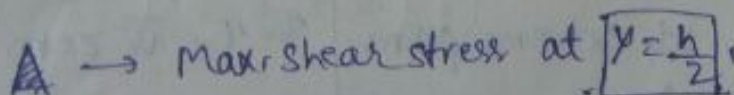 → Max. shear stress at y = h/2